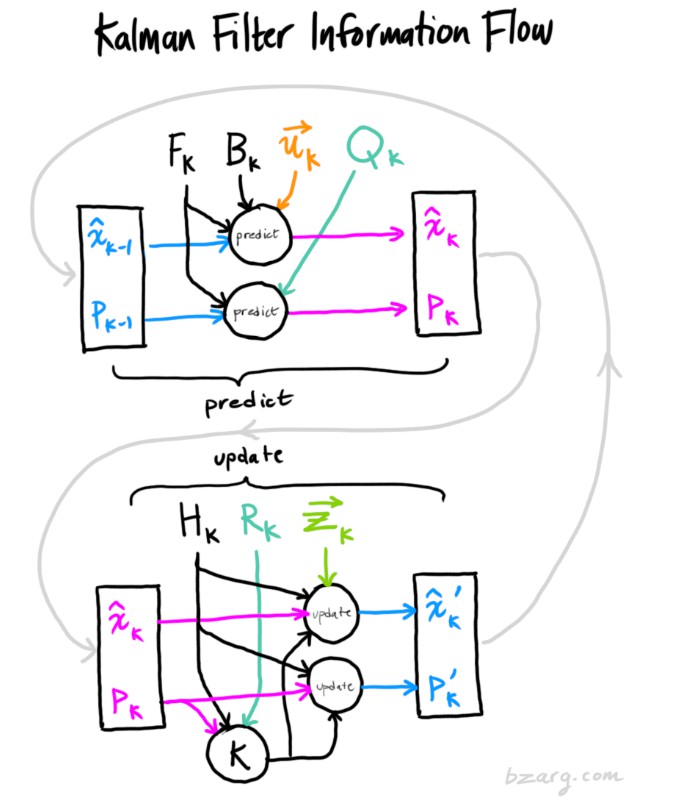 Kalman Filter Information Flow
F_k B_k u⃗_k Q_k
x̂_k-1 predict x̂_k
P_k-1 predict P_k
predict
update
H_k R_k z⃗_k
x̂_k update x̂_k′
P_k update P_k′
K
bzarg.com